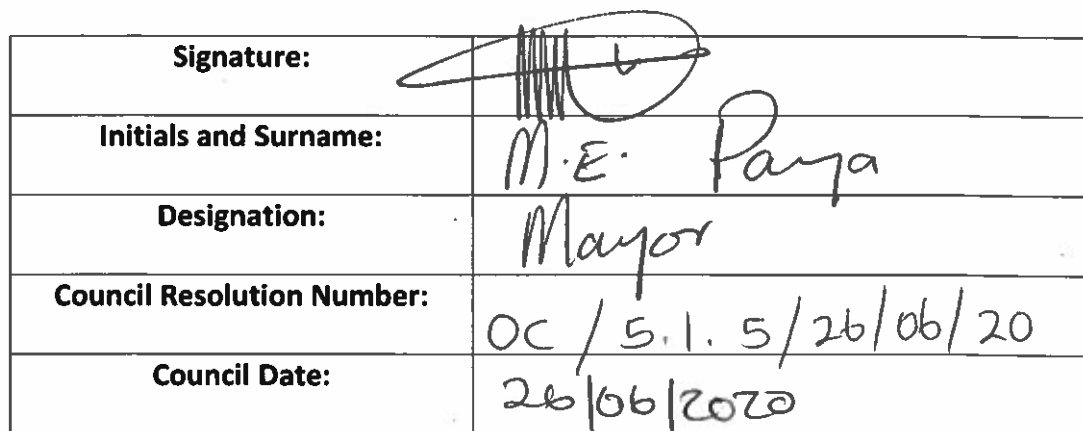 Signature:
Initials and Surname: M.E. Paya
Designation: Mayor
Council Resolution Number: OC / 5.1.5/26/06/20
Council Date: 26/06/2020